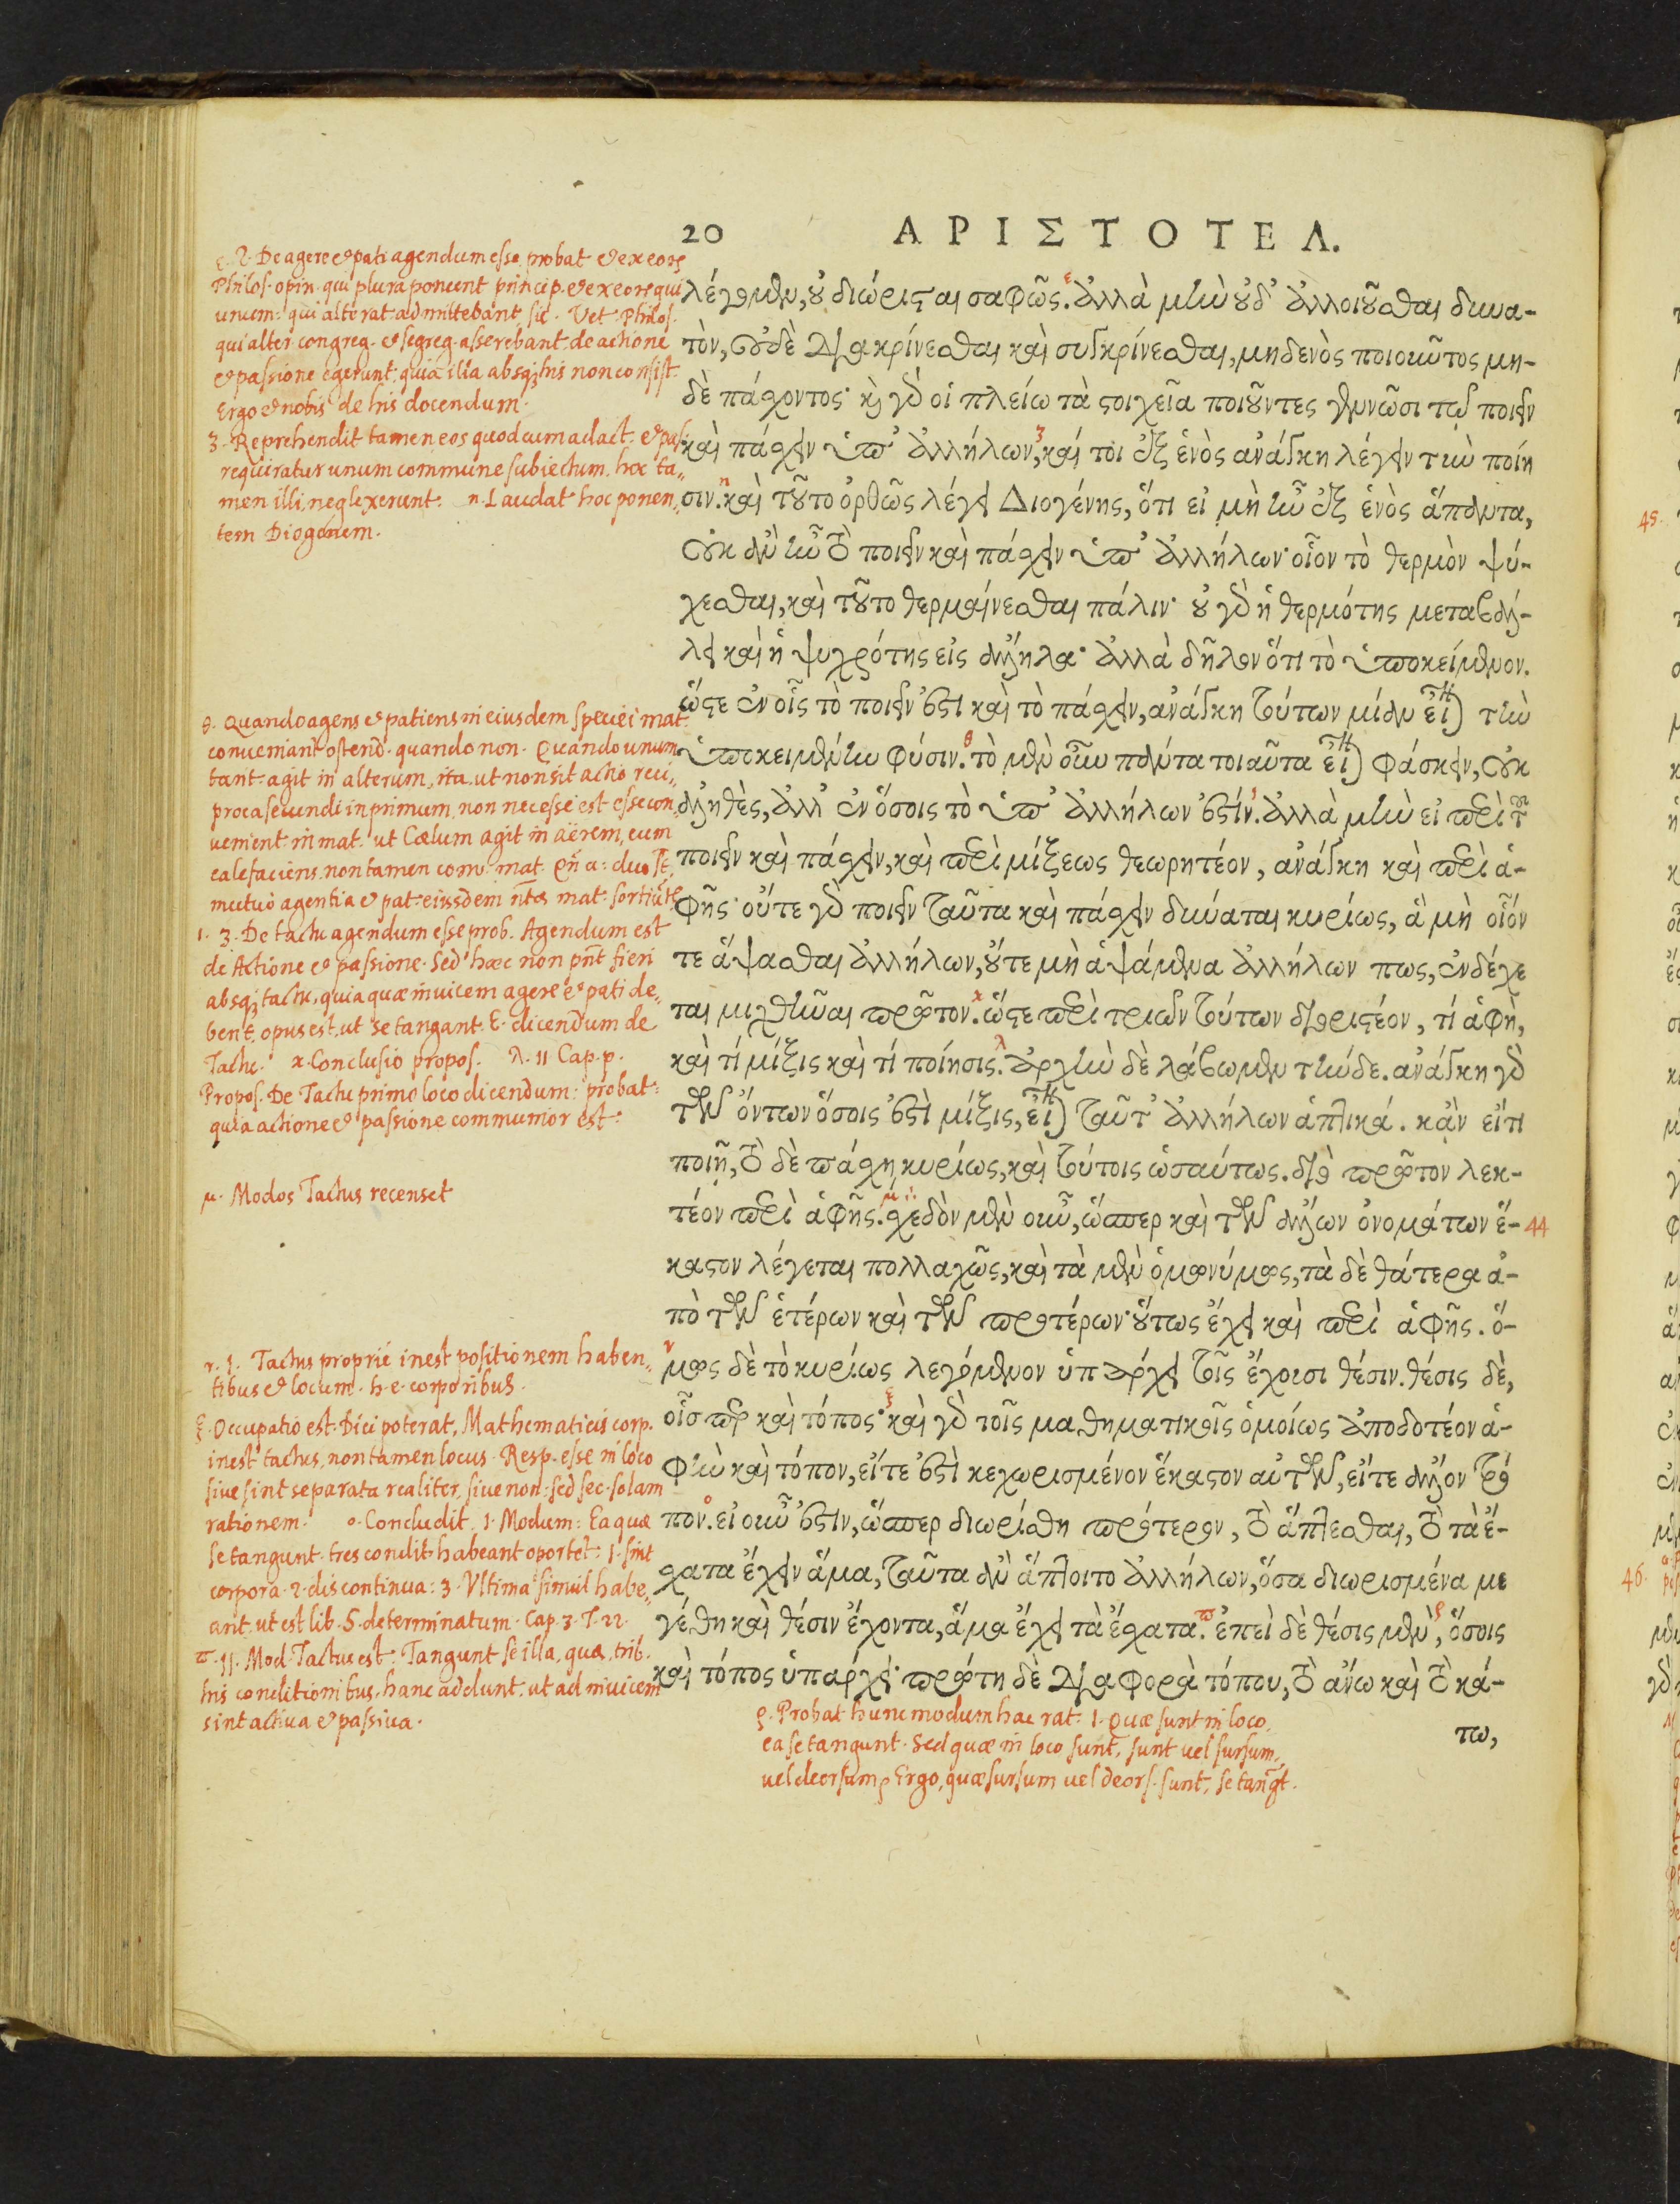 20 ΑΡΙΣΤΟΤΕΛ.
λέγομεν, οὐ διώρισται σαφῶς. ἀλλὰ μὴν οὐδ' ἀλλοιοῦσθαι δυνα-
τὸν, οὐδὲ διακρίνεσθαι καὶ συγκρίνεσθαι, μηδενὸς ποιοῦντος μη-
δὲ πάσχοντος· καὶ γὰρ οἱ πλείω τὰ στοιχεῖα ποιοῦντες γεννῶσι τῷ ποιεῖν
καὶ πάσχειν ὑπ' ἀλλήλων, καί τοι ἐξ ἑνὸς ἀνάγκη λέγειν τὴν ποίη
σιν. καὶ τοῦτο ὀρθῶς λέγει Διογένης, ὅτι εἰ μὴ ἦν ἐξ ἑνὸς ἅπαντα,
οὐκ ἂν ἦν τὸ ποιεῖν καὶ πάσχειν ὑπ' ἀλλήλων· οἷον τὸ θερμὸν ψύ-
χεσθαι, καὶ τοῦτο θερμαίνεσθαι πάλιν· οὐ γὰρ ἡ θερμότης μεταβάλ-
λει καὶ ἡ ψυχρότης εἰς ἄλληλα· ἀλλὰ δῆλον ὅτι τὸ ὑποκείμενον.
ὥστε ἐν οἷς τὸ ποιεῖν ἐστὶ καὶ τὸ πάσχειν, ἀνάγκη τούτων μίαν εἶναι τὴν
ὑποκειμένην φύσιν. τὸ μὲν οὖν πάντα τοιαῦτα εἶναι φάσκειν, οὐκ
ἀληθὲς, ἀλλ' ἐν ὅσοις τὸ ὑπ' ἀλλήλων ἐστίν. ἀλλὰ μὴν εἰ περὶ τοῦ
ποιεῖν καὶ πάσχειν, καὶ περὶ μίξεως θεωρητέον, ἀνάγκη καὶ περὶ ἁ-
φῆς· οὔτε γὰρ ποιεῖν ταῦτα καὶ πάσχειν δύναται κυρίως, ἃ μὴ οἷόν
τε ἅψασθαι ἀλλήλων, οὔτε μὴ ἁψάμενα ἀλλήλων πως, ἐνδέχε
ται μιχθῆναι πρῶτον. ὥστε περὶ τριῶν τούτων διοριστέον, τί ἁφὴ,
καὶ τί μίξις καὶ τί ποίησις. ἀρχὴν δὲ λάβωμεν τήνδε. ἀνάγκη γὰρ
τῶν ὄντων ὅσοις ἐστὶ μίξις, εἶναι ταῦτ' ἀλλήλων ἁπτικά. κᾂν εἴ τι
ποιῇ, τὸ δὲ πάσχῃ κυρίως, καὶ τούτοις ὡσαύτως. διὸ πρῶτον λεκ-
τέον περὶ ἁφῆς. σχεδὸν μὲν οὖν, ὥσπερ καὶ τῶν ἄλλων ὀνομάτων ἕ-
καστον λέγεται πολλαχῶς, καὶ τὰ μὲν ὁμωνύμως, τὰ δὲ θάτερα ἀ-
πὸ τῶν ἑτέρων καὶ τῶν προτέρων· οὕτως ἔχει καὶ περὶ ἁφῆς. ὅ-
μως δὲ τὸ κυρίως λεγόμενον ὑπάρχει τοῖς ἔχουσι θέσιν. θέσις δὲ,
οἷσπερ καὶ τόπος· καὶ γὰρ τοῖς μαθηματικοῖς ὁμοίως ἀποδοτέον ἁ-
φὴν καὶ τόπον, εἴτε ἐστὶ κεχωρισμένον ἕκαστον αὐτῶν, εἴτε ἄλλον τρό
πον. εἰ οὖν ἐστὶν, ὥσπερ διωρίσθη πρότερον, τὸ ἅπτεσθαι, τὸ τὰ ἔ-
σχατα ἔχειν ἅμα, ταῦτα ἂν ἅπτοιτο ἀλλήλων, ὅσα διωρισμένα με
γέθη καὶ θέσιν ἔχοντα, ἅμα ἔχει τὰ ἔσχατα. ἐπεὶ δὲ θέσις μὲν, ὅσοις
καὶ τόπος ὑπάρχει· πρώτη δὲ διαφορὰ τόπου, τὸ ἄνω καὶ τὸ κά-
τω,
ε. 2. De agere & pati agendum esse probat & ex eorum
Philos. opin. qui plura ponunt princip. & ex eorum qui
unum: qui alterat. admittebant, sic. Vet. Philos.
qui alter. congreg. & segreg. asserebant de actione
& passione egerunt: quia illa absq; his non consist.
Ergo & nobis de his docendum.
3. Reprehendit tamen eos quod cum ad act. & pas.
requiratur unum commune subiectum. hoc ta-
men illi neglexerunt. η. Laudat hoc ponen-
tem Diogenem.
θ. Quando agens & patiens in eiusdem speciei mat.
conveniant ostend. quando non. Quando unum
tant. agit in alterum, ita ut non sit actio reci-
proca secundi in primum, non necesse est esse con-
venient. in mat. ut Cælum agit in aërem, eum
calefaciens. non tamen com. mat.
mutuo agentia & pat. eiusdem mat.
ι. 3. De tactu agendum esse prob. Agendum est
de Actione & passione. Sed hæc non pnt fieri
absq; tactu, quia quæ invicem agere & pati de-
bent, opus est, ut se tangant. E. dicendum de
Tactu. κ. Conclusio propos. λ. 11 Cap. p.
Propos. De Tactu primo loco dicendum: probat:
quia actione & passione communior est.
μ. Modos Tactus recenset
44
ν. 1. Tactus proprie inest positionem haben-
tibus & locum. h.e. corporibus.
ξ. Occupatio est. Dici poterat, Mathematicis corp.
inest tactus, non tamen locus. Resp. esse in loco
sive sint separata realiter, sive non: sed sec. solam
rationem. ο. Concludit. 1. Modum: Ea quæ
se tangunt. tres condit. habeant oportet: 1. sint
corpora. 2. discontinua: 3. Ultima simul habe-
ant, ut est lib. 5. determinatum. Cap. 3. T. 22.
π. 11. Mod. Tactus est: Tangunt se illa, quæ, trib.
his conditionibus, hanc addunt, ut ad invicem
sint activa & passiva.
ρ. Probat hunc modum hac rat. 1. Quæ sunt in loco,
ea se tangunt. Sed quæ in loco sunt, sunt vel sursum,
vel deorsum, Ergo, quæ sursum vel deors. sunt, se tangt.
45.
46.